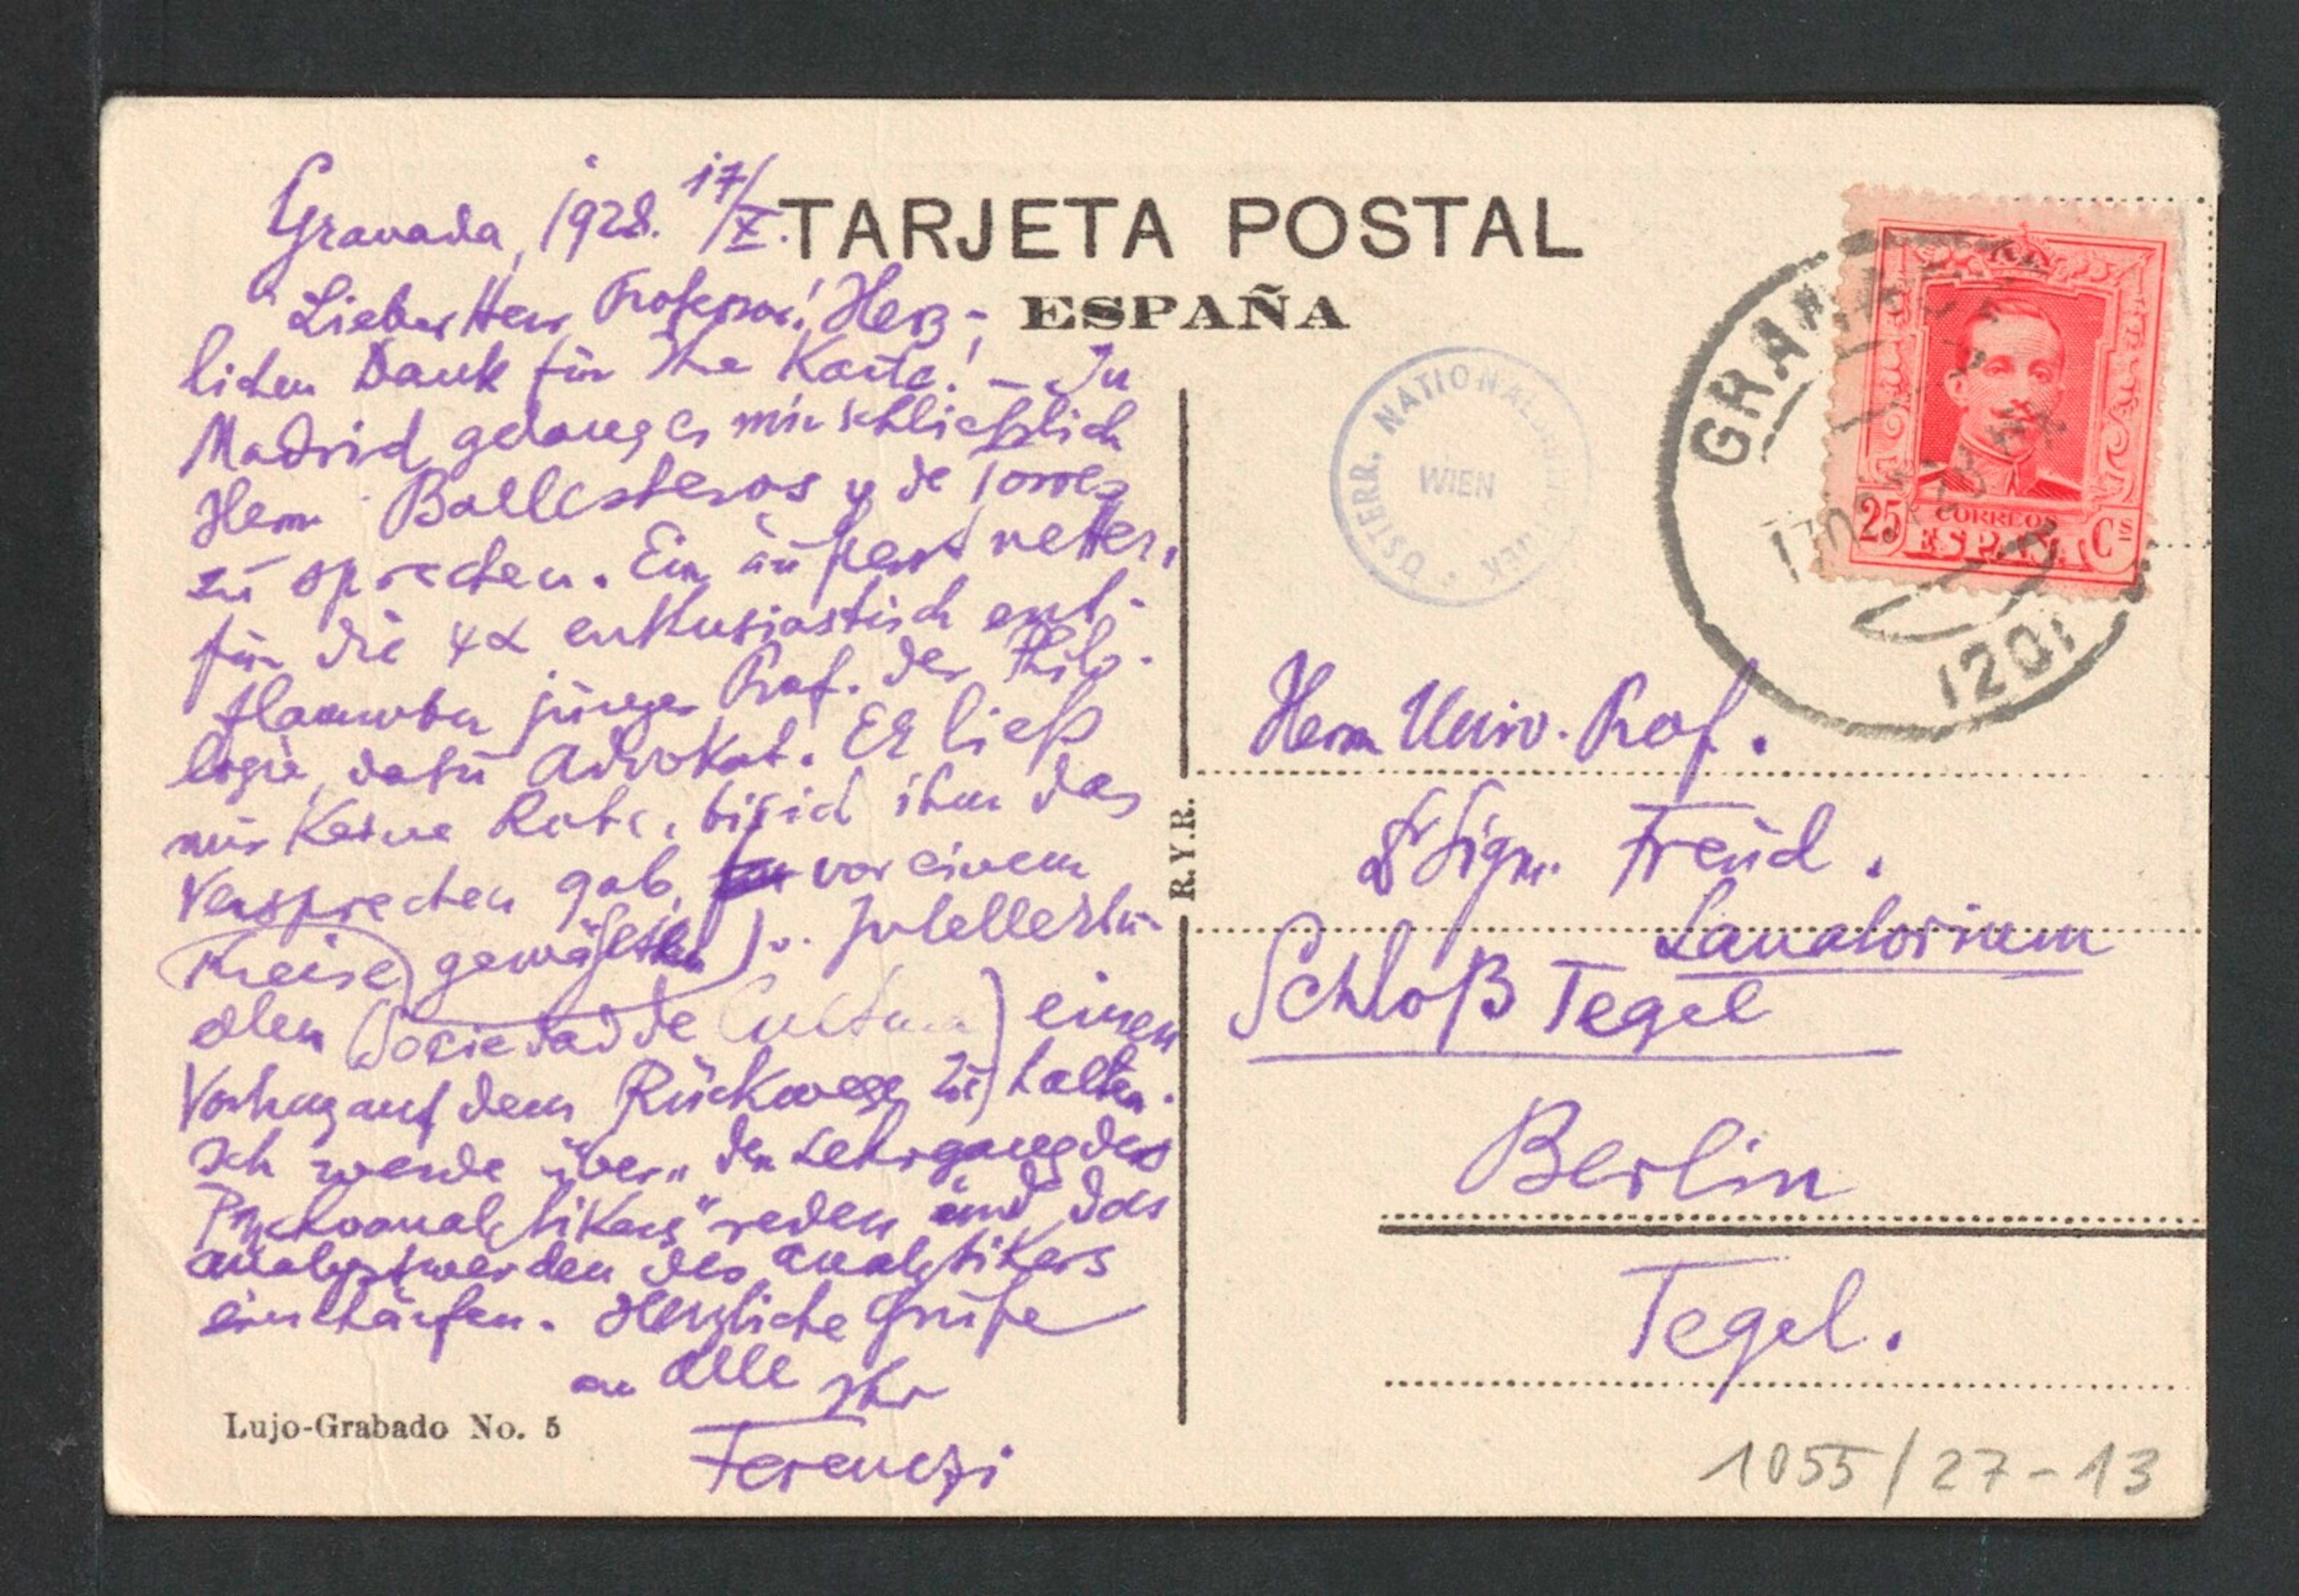 Granada, 1928. 17/X.
TARJETA POSTAL
ESPAÑA
Lieber Herr Professor! Herz-
lichen Dank für Ihre Karte! – In
Madrid gelang es mir schließlich
Herrn Ballesteros y de Torres
zu sprechen. Ein äußerst netter,
für die ψα enthusiastisch ent-
flammter junger Prof. der Philo-
logie, dazu Advokat. Er ließ
mir keine Ruhe, bis ich ihm das
Versprechen gab, vor einem
Kreise gewählter u. intellektu-
ellen (Sociedad de Cultura) einen
Vortrag auf dem Rückwege zu halten.
Ich werde über „den Lehrgang des
Psychoanalytikers“ reden und das
Analystwerden des Analytikers
einschärfen. Herzliche Grüße
an alle Ihr
Ferenczi
Lujo-Grabado No. 5
R.Y.R.
ÖSTERR. NATIONALBIBLIOTHEK
WIEN
GRANADA
1201
25 CORREOS Cs
ESPAÑA
Herrn Univ. Prof.
Dr Sigm. Freud.
Sanatorium
Schloß Tegel
Berlin
Tegel.
1055/27-13